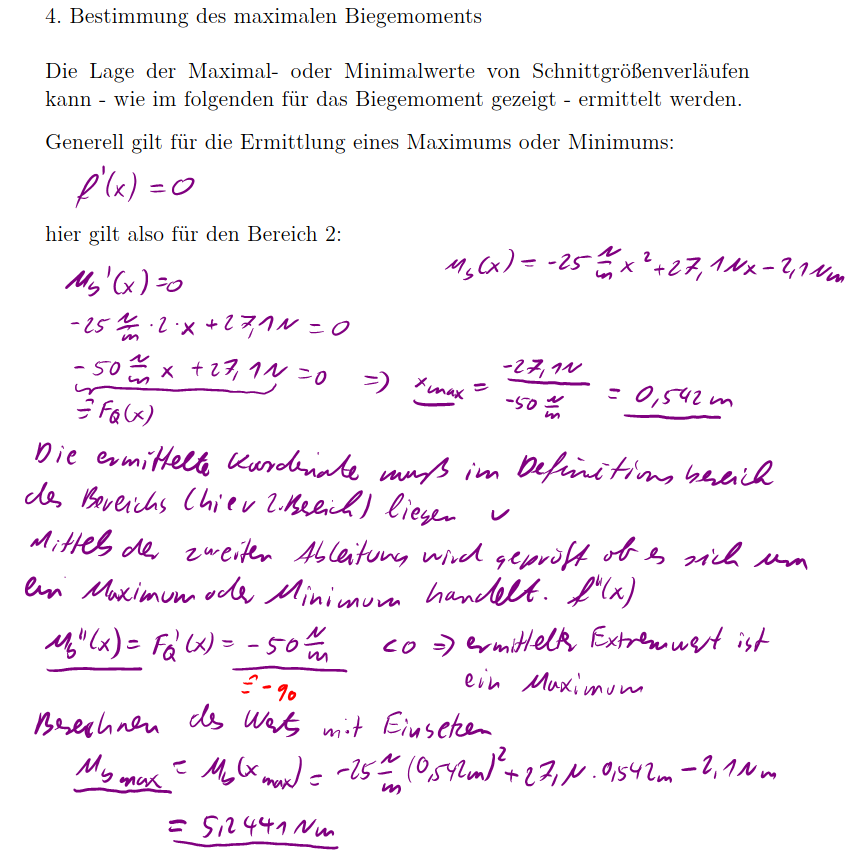 4. Bestimmung des maximalen Biegemoments
Die Lage der Maximal- oder Minimalwerte von Schnittgrößenverläufen
kann - wie im folgenden für das Biegemoment gezeigt - ermittelt werden.
Generell gilt für die Ermittlung eines Maximums oder Minimums:
f'(x) = 0
hier gilt also für den Bereich 2:
M_b(x) = -25 N/m x² + 27,1Nx - 2,1Nm
M_b'(x) = 0
-25 N/m · 2 · x + 27,1N = 0
-50 N/m x + 27,1N = 0 => x_max = -27,1N / -50 N/m = 0,542 m
≙ F_Q(x)
Die ermittelte Koordinate muß im Definitionsbereich
des Bereichs (hier 2. Bereich) liegen ✓
Mittels der zweiten Ableitung wird geprüft ob es sich um
ein Maximum oder Minimum handelt. f''(x)
M_b''(x) = F_Q'(x) = -50 N/m < 0 => ermittelter Extremwert ist
ein Maximum
≙ -q_0
Berechnen des Werts mit Einsetzen
M_b max = M_b(x_max) = -25 N/m (0,542m)² + 27,1 N · 0,542m - 2,1Nm
= 5,2441Nm